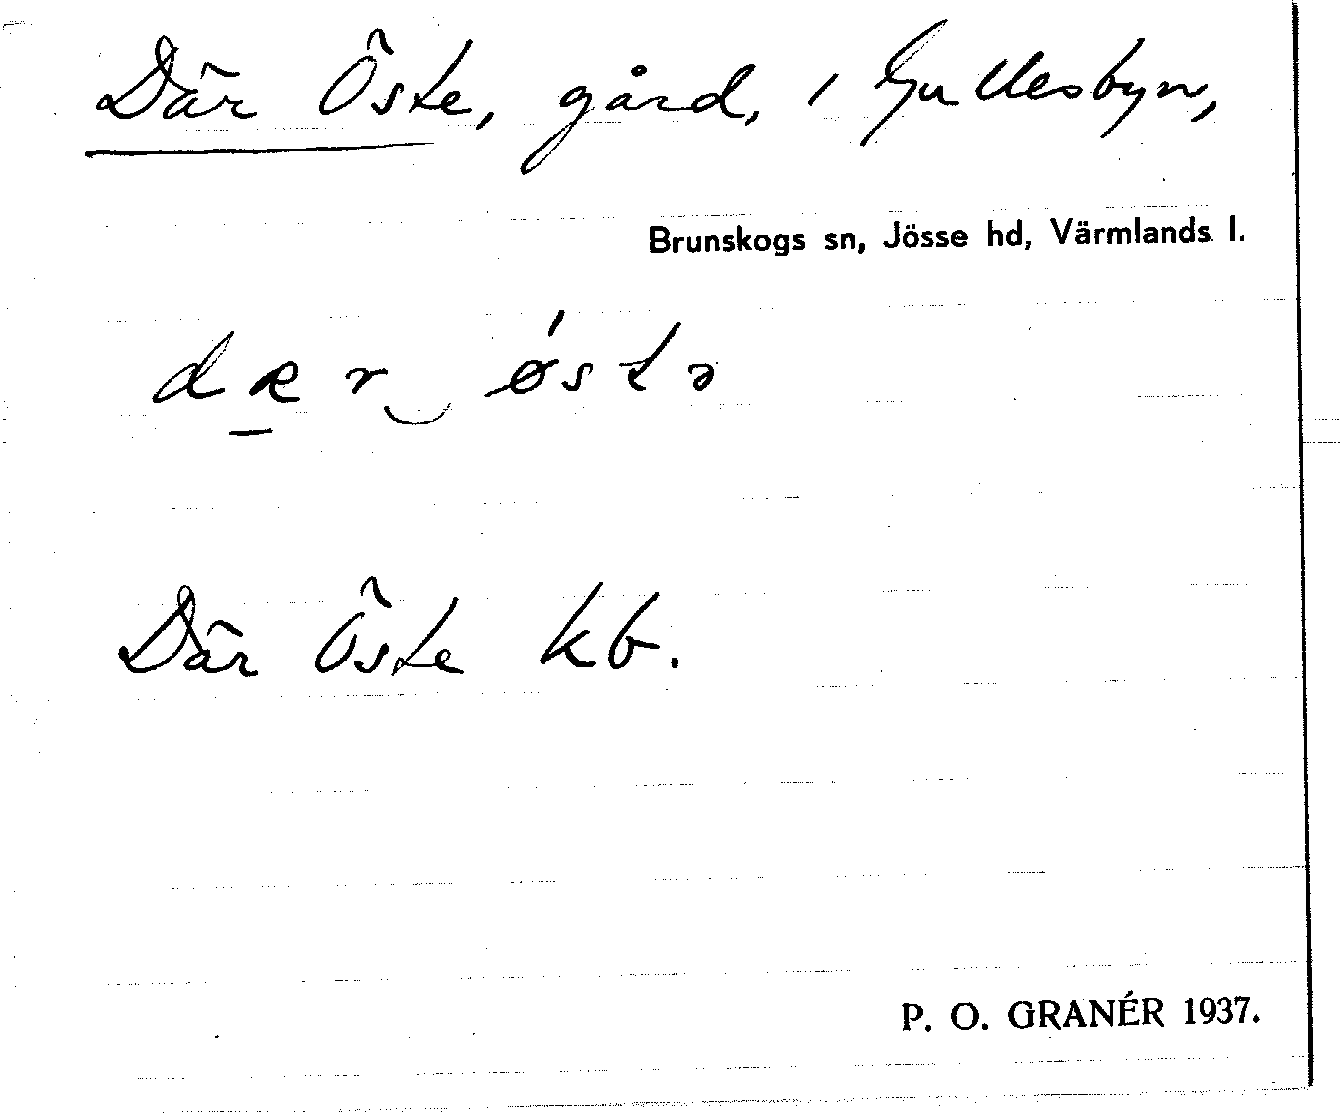 Där Öste, gård, i Gullesbyn,
Brunskogs sn, Jösse hd, Värmlands l.
dær‿østə
Där Öste kb.
P. O. GRANÉR 1937.